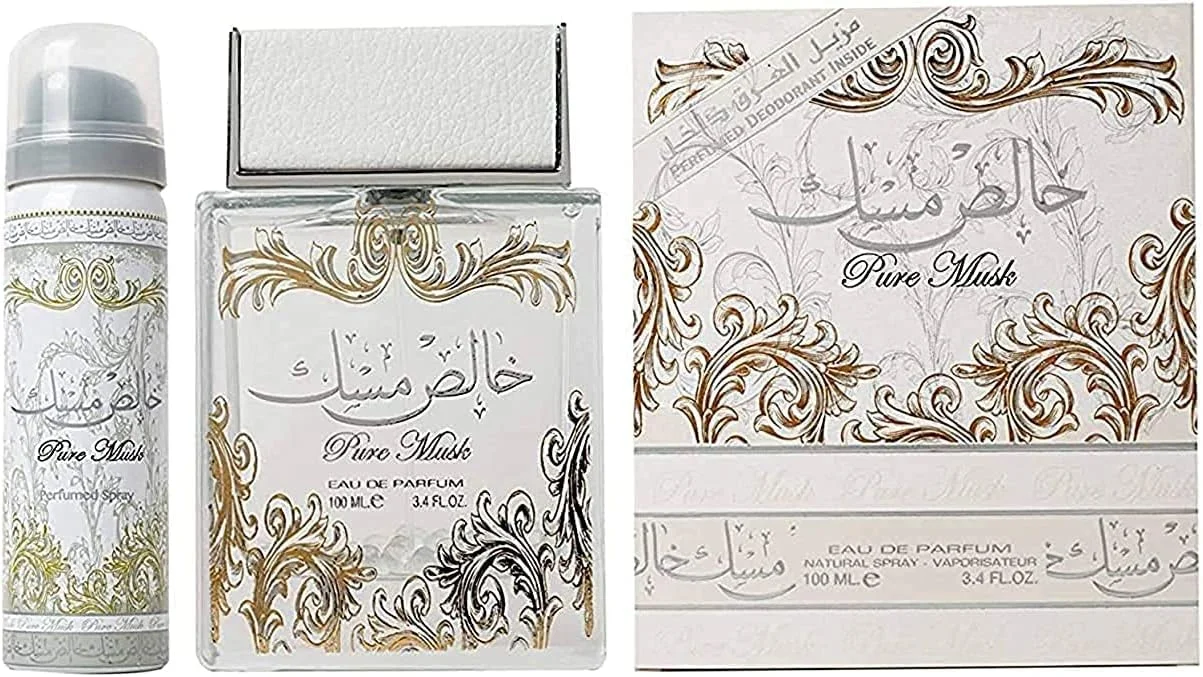 خالص مسك
Pure Musk
Perfumed Spray
Pure Musk Pure Musk
خالص مسك
Pure Musk
EAU DE PARFUM
100 ML.e 3.4 FL.OZ.
مزيل العرق داخل
PERFUMED DEODORANT INSIDE
خالص مسك
Pure Musk
Pure Musk Pure Musk Pure Musk
خالص مسك
EAU DE PARFUM
NATURAL SPRAY - VAPORISATEUR
100 ML.e 3.4 FL.OZ.